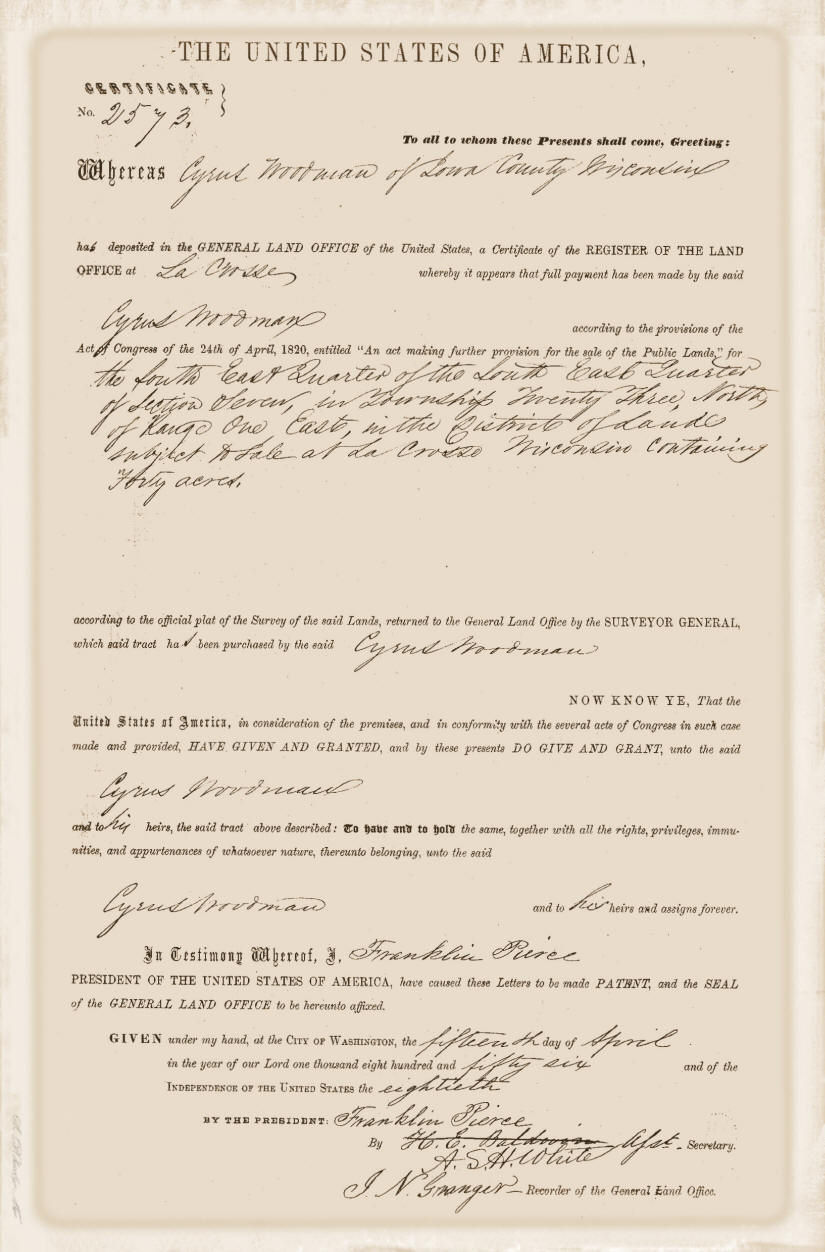 THE UNITED STATES OF AMERICA,
CERTIFICATE
No. 2573.
To all to whom these Presents shall come, Greeting:
Whereas Cyrus Woodman of Iowa County Wisconsin
has deposited in the GENERAL LAND OFFICE of the United States, a Certificate of the REGISTER OF THE LAND
OFFICE at La Crosse whereby it appears that full payment has been made by the said
Cyrus Woodman according to the provisions of the
Act of Congress of the 24th of April, 1820, entitled "An act making further provision for the sale of the Public Lands," for
the South East Quarter of the South East Quarter
of Section Seven, in Township Twenty Three, North,
of Range One, East, in the District of Lands
subject to Sale at La Crosse Wisconsin Containing
Forty acres.
according to the official plat of the Survey of the said Lands, returned to the General Land Office by the SURVEYOR GENERAL,
which said tract has been purchased by the said Cyrus Woodman
NOW KNOW YE, That the
United States of America, in consideration of the premises, and in conformity with the several acts of Congress in such case
made and provided, HAVE GIVEN AND GRANTED, and by these presents DO GIVE AND GRANT, unto the said
Cyrus Woodman
and to his heirs, the said tract above described: To have and to hold the same, together with all the rights, privileges, immu-
nities, and appurtenances of whatsoever nature, thereunto belonging, unto the said
Cyrus Woodman and to his heirs and assigns forever.
In Testimony Whereof, I, Franklin Pierce
PRESIDENT OF THE UNITED STATES OF AMERICA, have caused these Letters to be made PATENT, and the SEAL
of the GENERAL LAND OFFICE to be hereunto affixed.
GIVEN under my hand, at the CITY OF WASHINGTON, the fifteenth day of April
in the year of our Lord one thousand eight hundred and fifty six and of the
INDEPENDENCE OF THE UNITED STATES the eightieth
BY THE PRESIDENT: Franklin Pierce
By H. E. Baldwin Asst. Secretary.
A. S. H. White
J. N. Granger Recorder of the General Land Office.